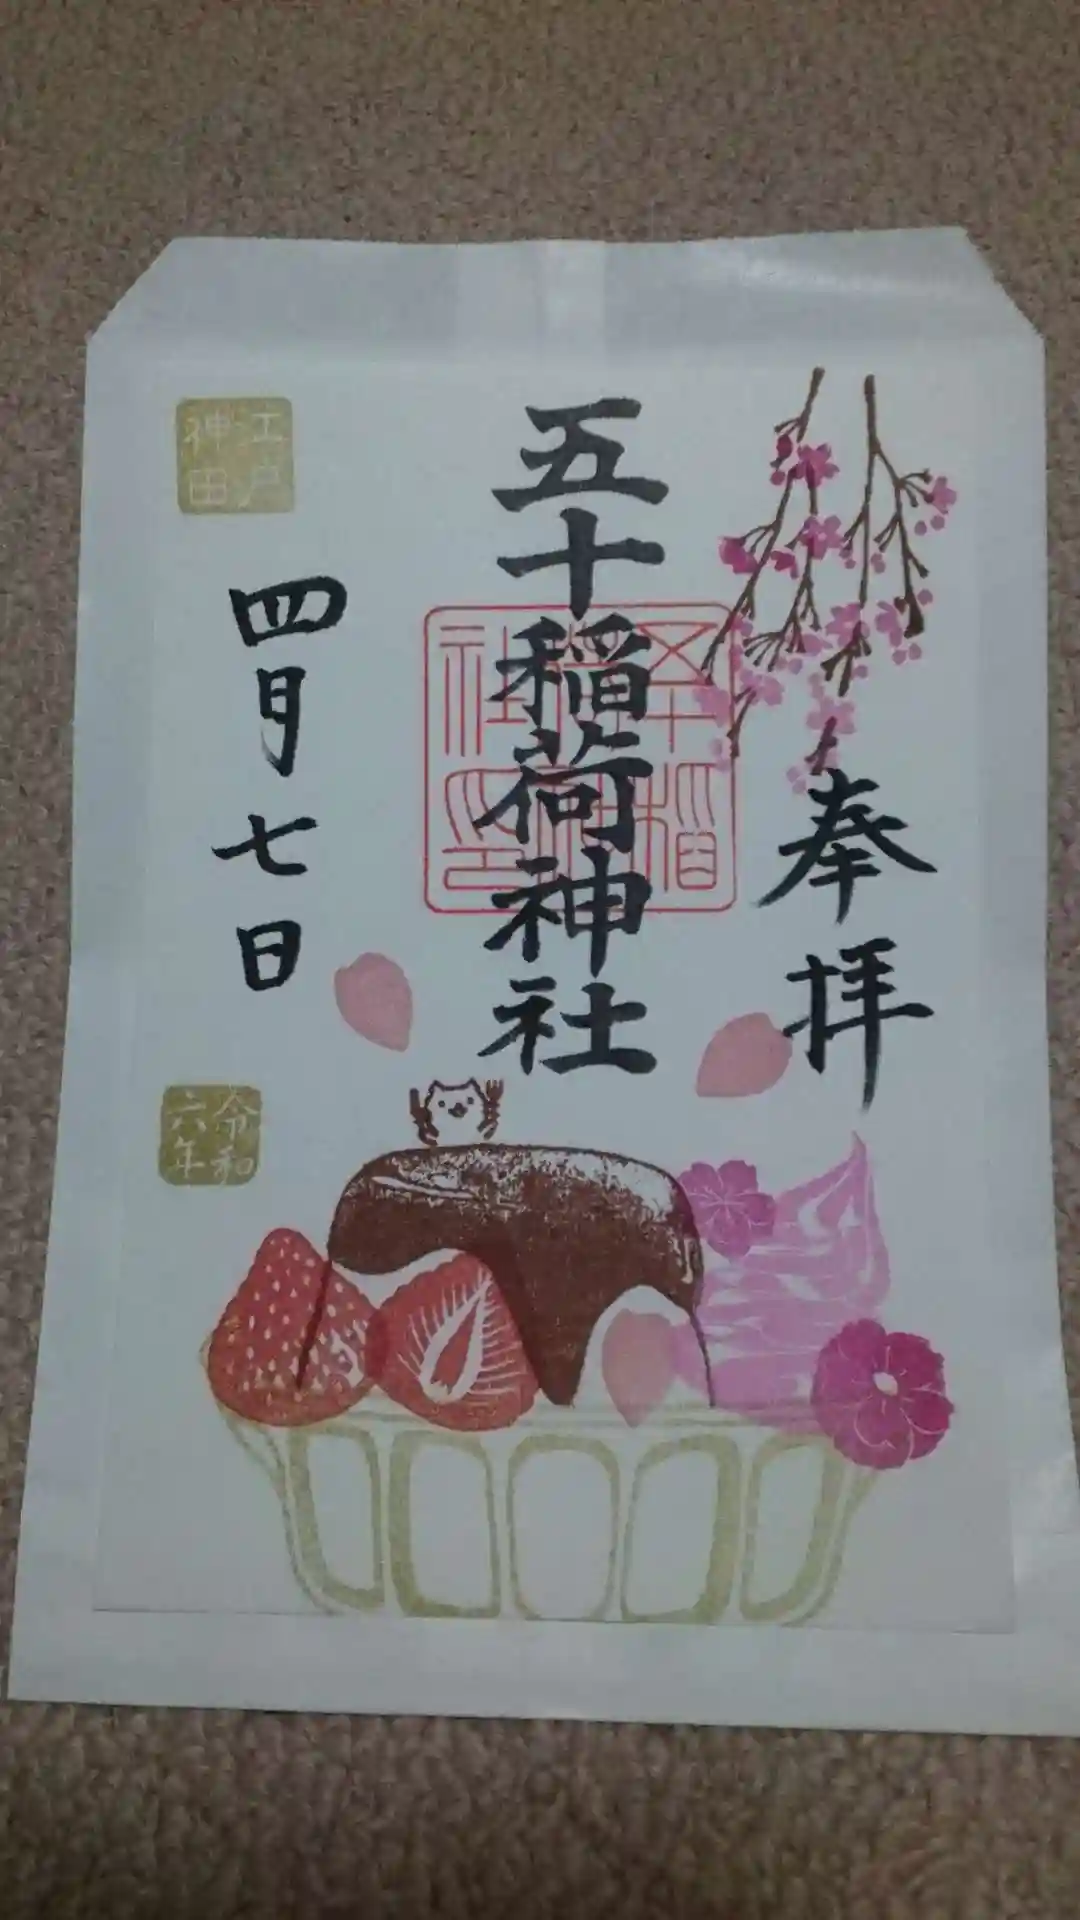 奉拝
五十稲荷神社
五十稲荷神社印
江戸神田
四月七日
令和六年